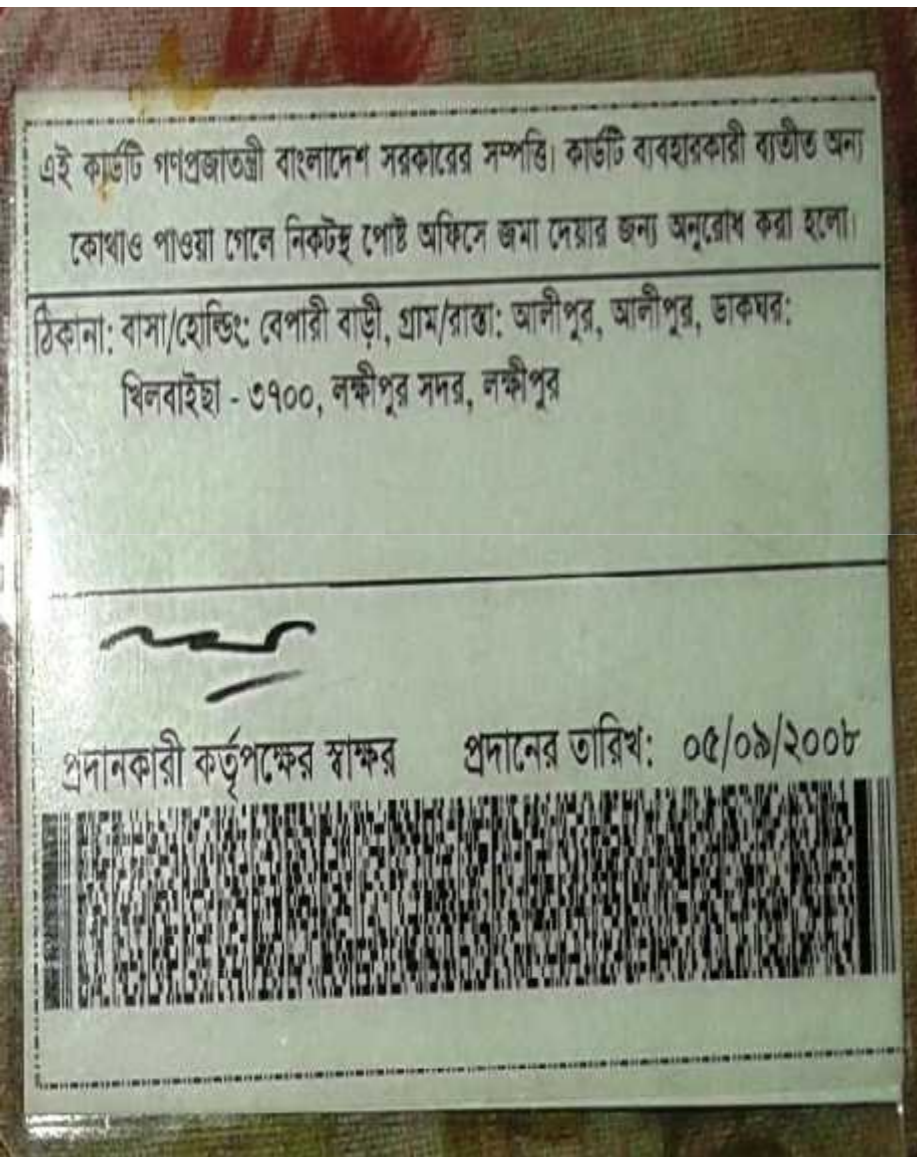 এই কার্ডটি গণপ্রজাতন্ত্রী বাংলাদেশ সরকারের সম্পত্তি। কার্ডটি ব্যবহারকারী ব্যতীত অন্য
কোথাও পাওয়া গেলে নিকটস্থ পোষ্ট অফিসে জমা দেয়ার জন্য অনুরোধ করা হলো।
ঠিকানা: বাসা/হোল্ডিং: বেপারী বাড়ী, গ্রাম/রাস্তা: আলীপুর, আলীপুর, ডাকঘর:
খিলবাইছা - ৩৭০০, লক্ষীপুর সদর, লক্ষীপুর
প্রদানকারী কর্তৃপক্ষের স্বাক্ষর প্রদানের তারিখ: ০৫/০৯/২০০৮